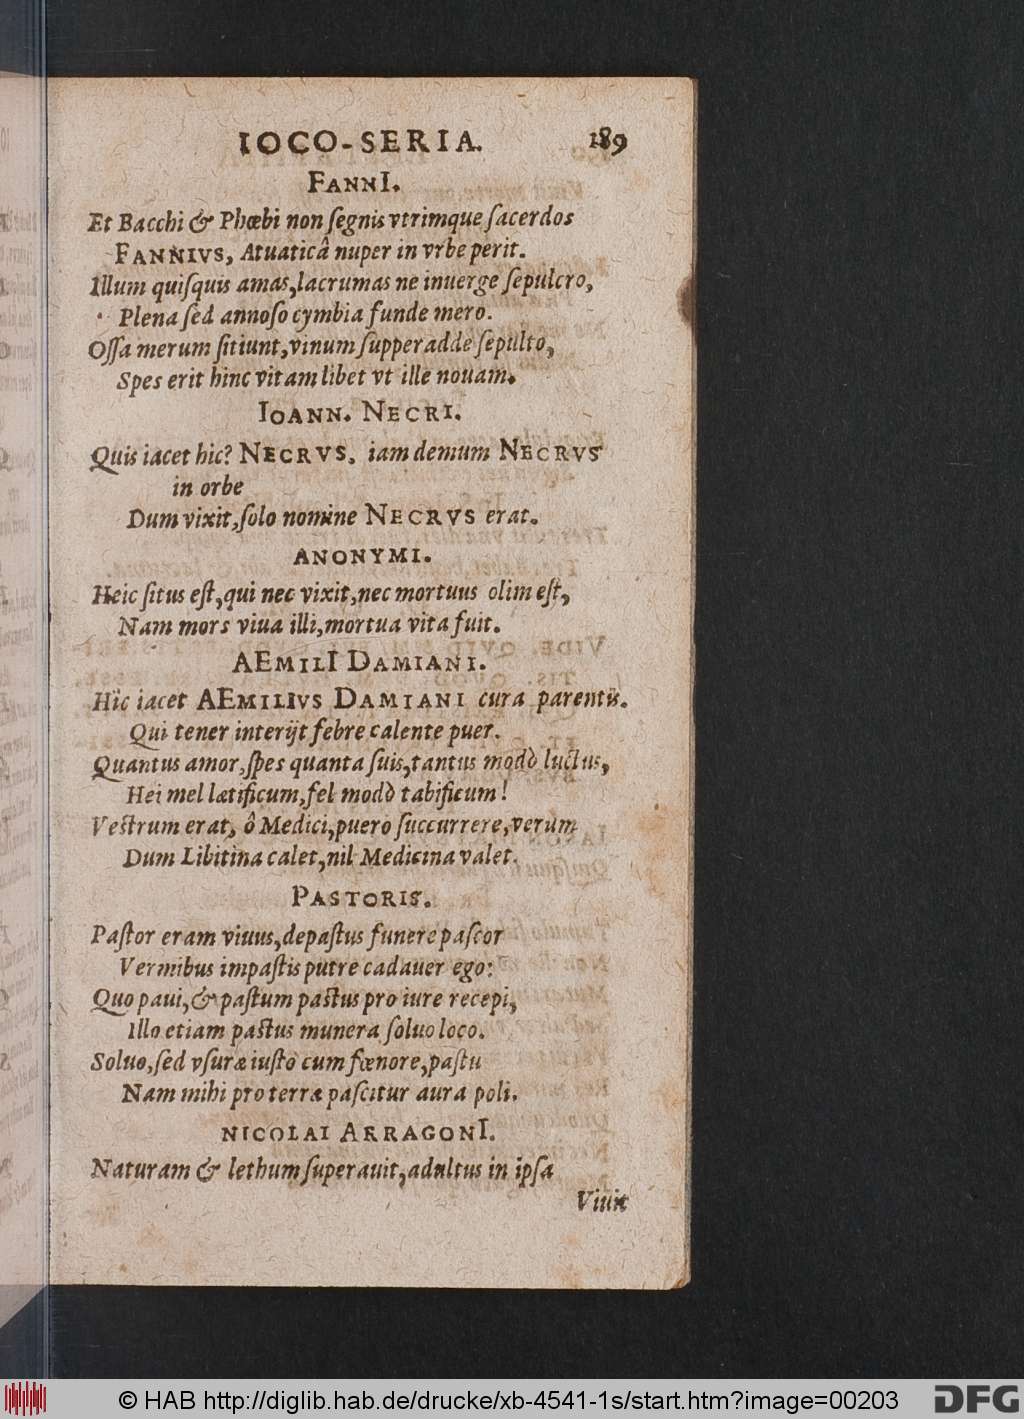 IOCO-SERIA. 189
FANNI.
Et Bacchi & Phœbi non ſegnis vtrimque ſacerdos
FANNIVS, Atuaticâ nuper in vrbe perit.
Illum quiſquis amas, lacrumas ne inuerge ſepulcro,
Plena ſed annoſo cymbia funde mero.
Oſſa merum ſitiunt, vinum ſupperadde ſepulto,
Spes erit hinc vitam libet vt ille nouam.
IOANN. NECRI.
Quis iacet hic? NECRVS, iam demum NECRVS
in orbe
Dum vixit, ſolo nomine NECRVS erat.
ANONYMI.
Heic ſitus eſt, qui nec vixit, nec mortuus olim eſt,
Nam mors viua illi, mortua vita fuit.
AEMILI DAMIANI.
Hîc iacet AEMILIVS DAMIANI cura parentis.
Qui tener interijt febre calente puer.
Quantus amor, ſpes quanta ſuis, tantus modò luctus,
Hei mel lætificum, fel modò tabificum!
Veſtrum erat, ô Medici, puero ſuccurrere, verùm
Dum Libitina calet, nil Medicina valet.
PASTORIS.
Paſtor eram viuus, depaſtus funere paſcor
Vermibus impaſtis putre cadauer ego:
Quo paui, & paſtum paſtus pro iure recepi,
Illo etiam paſtus munera ſoluo loco.
Soluo, ſed vſuræ iuſto cum fœnore, paſtu
Nam mihi pro terra paſcitur aura poli.
NICOLAI ARRAGONI.
Naturam & lethum ſuperauit, adultus in ipſa
Viuit
© HAB http://diglib.hab.de/drucke/xb-4541-1s/start.htm?image=00203 DFG